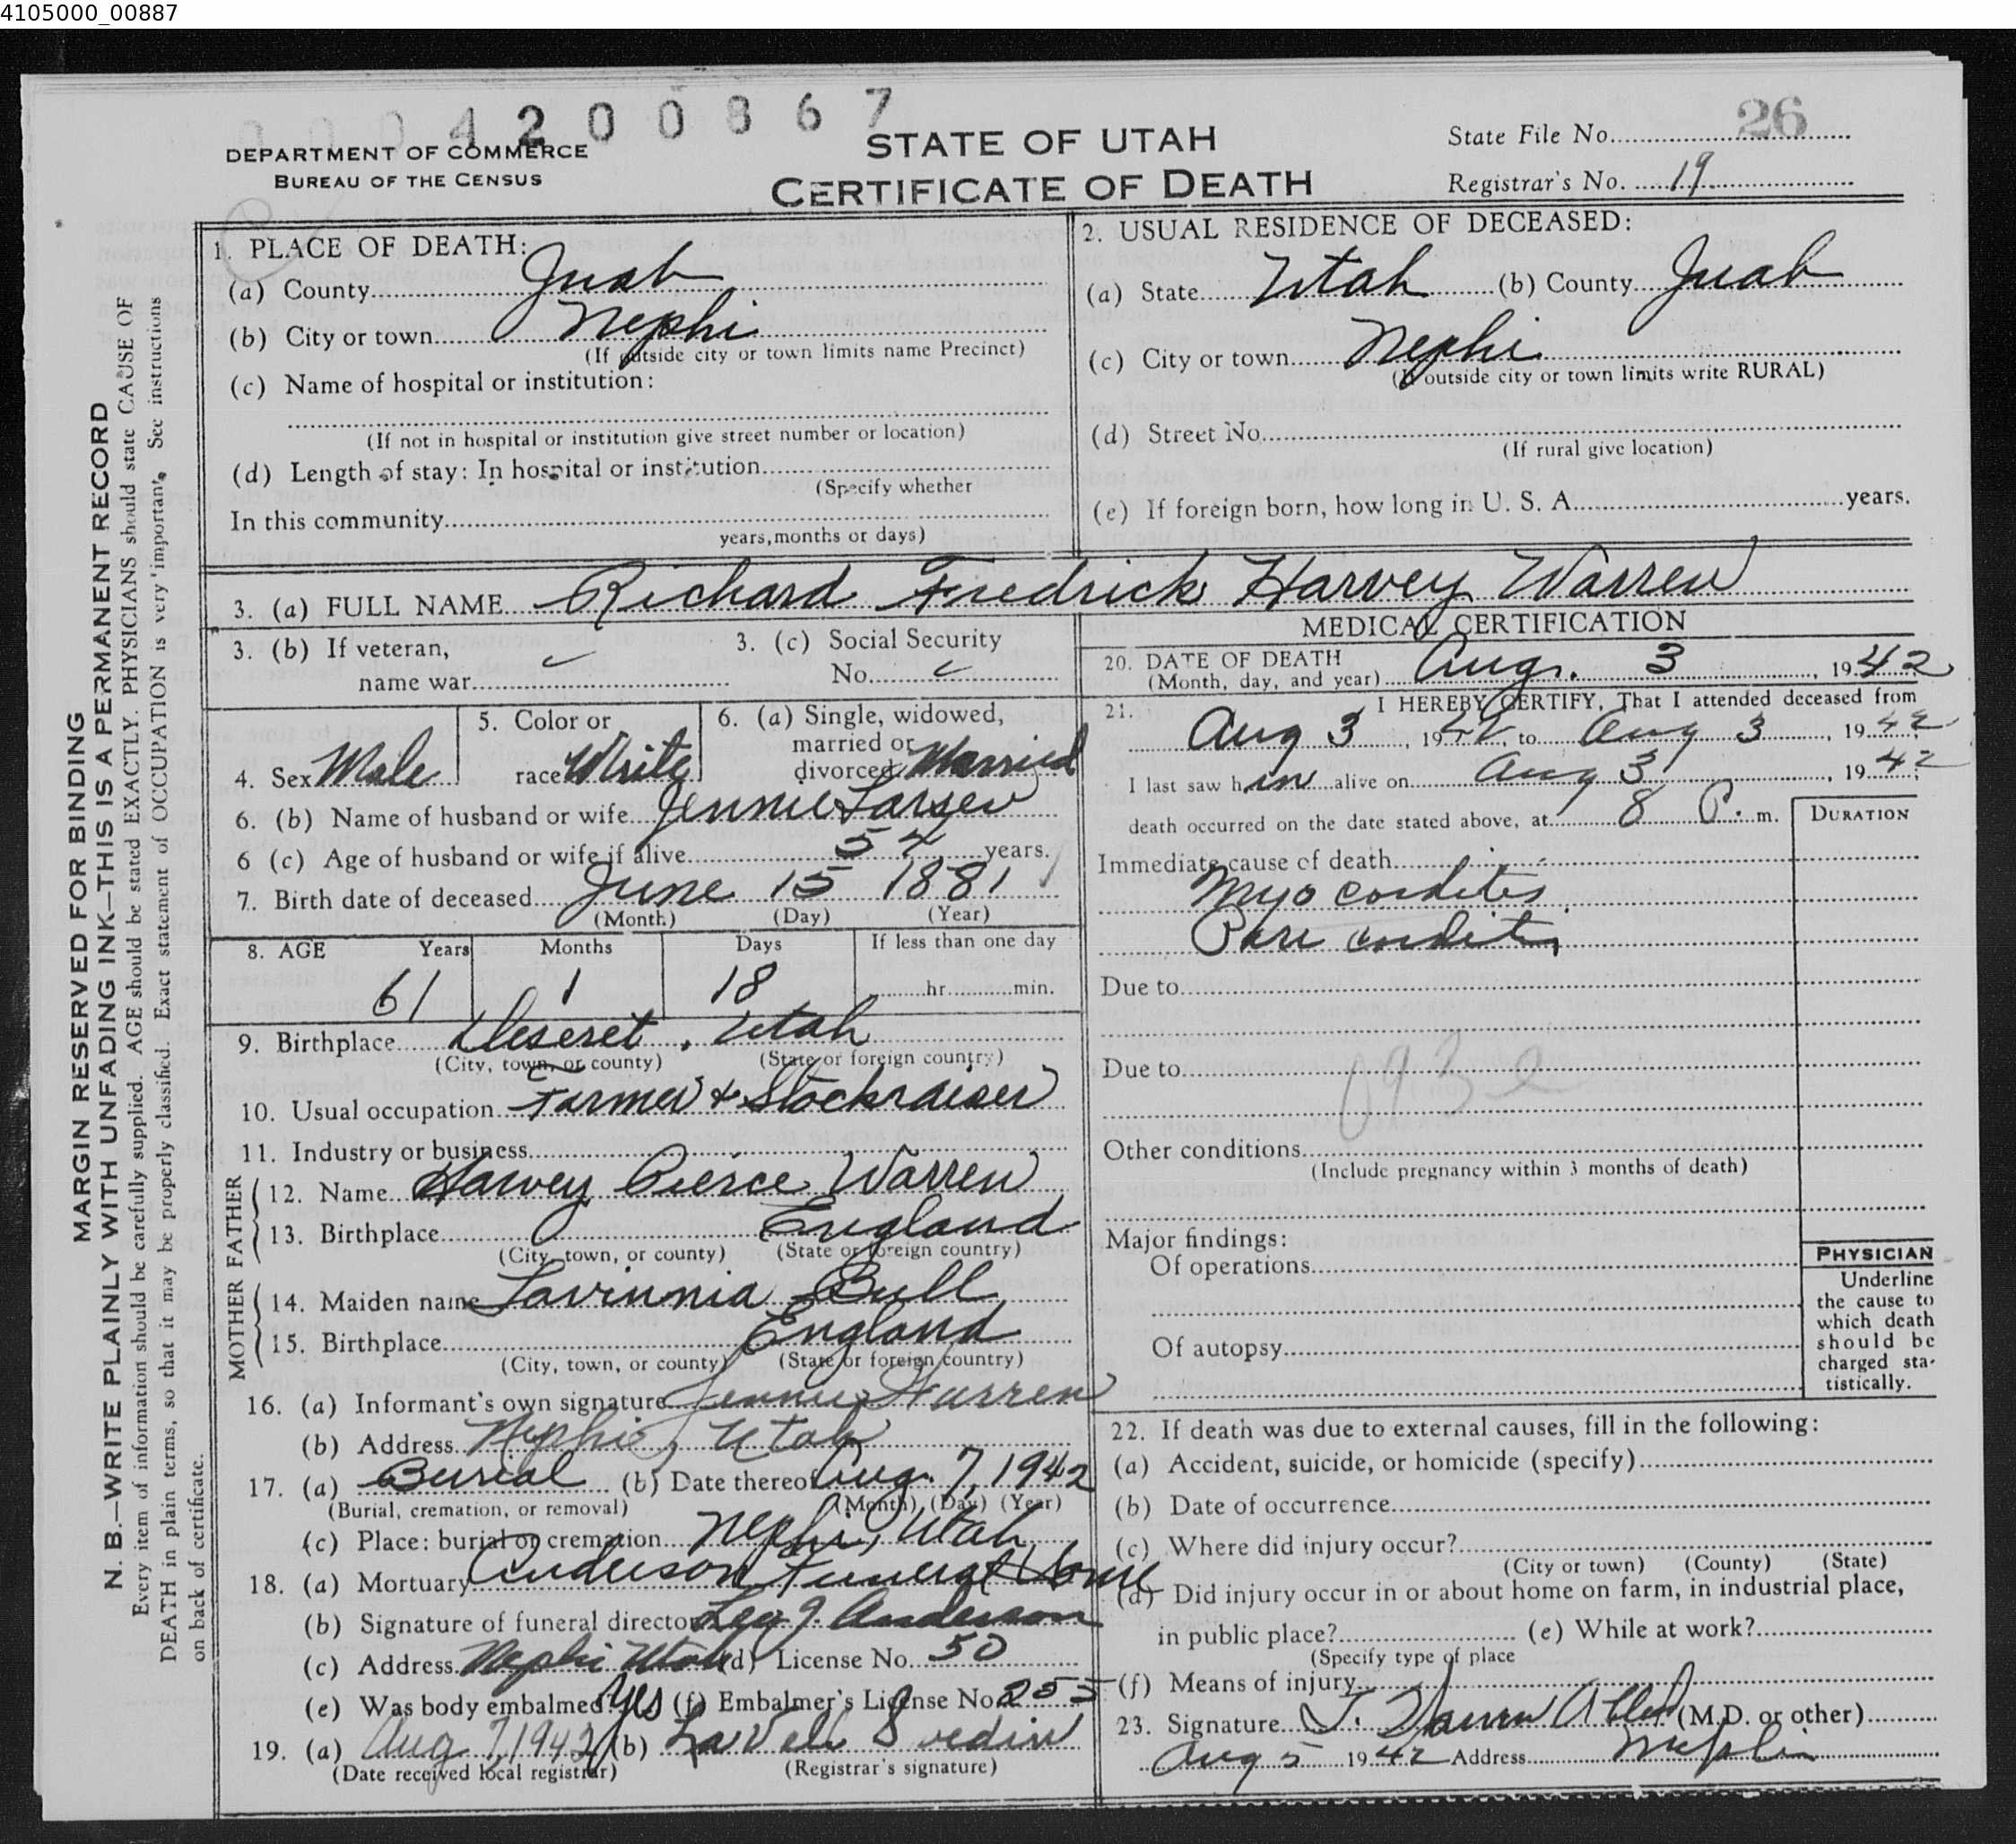 4105000_00887
0004200867
DEPARTMENT OF COMMERCE
BUREAU OF THE CENSUS
STATE OF UTAH
CERTIFICATE OF DEATH
State File No. 26
Registrar's No. 19
MARGIN RESERVED FOR BINDING
N. B.—WRITE PLAINLY WITH UNFADING INK—THIS IS A PERMANENT RECORD
Every item of information should be carefully supplied. AGE should be stated EXACTLY. PHYSICIANS should state CAUSE OF
DEATH in plain terms, so that it may be properly classified. Exact statement of OCCUPATION is very important. See instructions
on back of certificate.
1. PLACE OF DEATH:
(a) County Juab
(b) City or town Nephi
(If outside city or town limits name Precinct)
(c) Name of hospital or institution:
(If not in hospital or institution give street number or location)
(d) Length of stay: In hospital or institution
(Specify whether
In this community
years, months or days)
2. USUAL RESIDENCE OF DECEASED:
(a) State Utah (b) County Juab
(c) City or town Nephi
(If outside city or town limits write RURAL)
(d) Street No.
(If rural give location)
(e) If foreign born, how long in U. S. A. years.
3. (a) FULL NAME Richard Fredrick Harvey Warren
3. (b) If veteran,
name war
3. (c) Social Security
No.
4. Sex Male
5. Color or
race White
6. (a) Single, widowed,
married or
divorced Married
6. (b) Name of husband or wife Jennie Larsen
6 (c) Age of husband or wife if alive 54 years.
7. Birth date of deceased June 15 1881
(Month) (Day) (Year)
8. AGE Years Months Days If less than one day
61 1 18 hr. min.
9. Birthplace Deseret, Utah
(City, town, or county) (State or foreign country)
10. Usual occupation Farmer & Stockraiser
11. Industry or business
FATHER
12. Name Harvey Pierce Warren
13. Birthplace England
(City, town, or county) (State or foreign country)
MOTHER
14. Maiden name Lavinnia Bull
15. Birthplace England
(City, town, or county) (State or foreign country)
16. (a) Informant's own signature Jennie Warren
(b) Address Nephi, Utah
17. (a) Burial (b) Date thereof Aug. 7, 1942
(Burial, cremation, or removal) (Month) (Day) (Year)
(c) Place: burial or cremation Nephi, Utah
18. (a) Mortuary Anderson Funeral Home
(b) Signature of funeral director Leo J. Anderson
(c) Address Nephi Utah (d) License No. 50
(e) Was body embalmed? Yes (f) Embalmer's License No. 255
19. (a) Aug 7, 1942 (b) LaVell
(Date received local registrar) (Registrar's signature)
MEDICAL CERTIFICATION
20. DATE OF DEATH
(Month, day, and year) Aug. 3, 1942
21. I HEREBY CERTIFY, That I attended deceased from
Aug 3, 1942, to Aug 3, 1942
I last saw him alive on Aug 3, 1942
death occurred on the date stated above, at 8 P. m.
DURATION
Immediate cause of death
Myo corditis
Peri
Due to
Due to
093
Other conditions
(Include pregnancy within 3 months of death)
Major findings:
Of operations
Of autopsy
PHYSICIAN
Underline
the cause to
which death
should be
charged sta-
tistically.
22. If death was due to external causes, fill in the following:
(a) Accident, suicide, or homicide (specify)
(b) Date of occurrence
(c) Where did injury occur?
(City or town) (County) (State)
(d) Did injury occur in or about home on farm, in industrial place,
in public place? (e) While at work?
(Specify type of place
(f) Means of injury
23. Signature (M.D. or other)
Aug 5 1942 Address Nephi